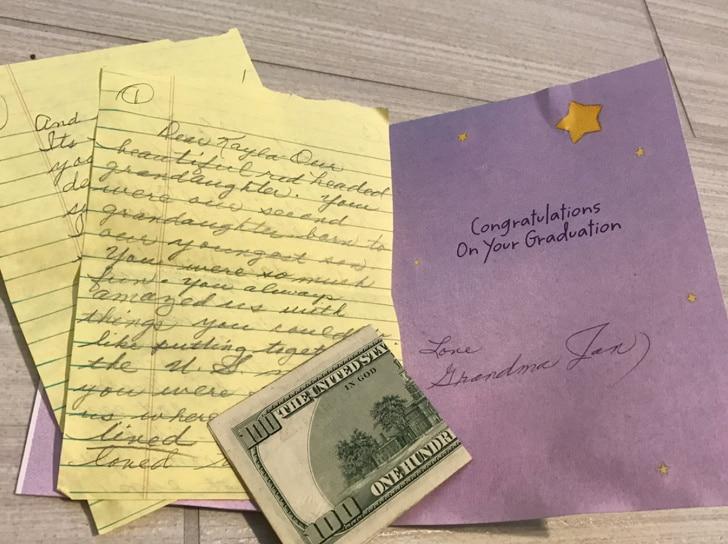 ①
Dear Kayla - Our
beautiful red headed
grandaughter. You
were our second
grandaughter born to
our youngest son
You were so much
fun. You always
amazed us with
things you could
like putting toget
the U.S
you were
us where
lined
loved
And
Its
you
Congratulations
On Your Graduation
Love
Grandma Jan
100
THE UNITED STA
IN GOD
100
ONE HUNDR